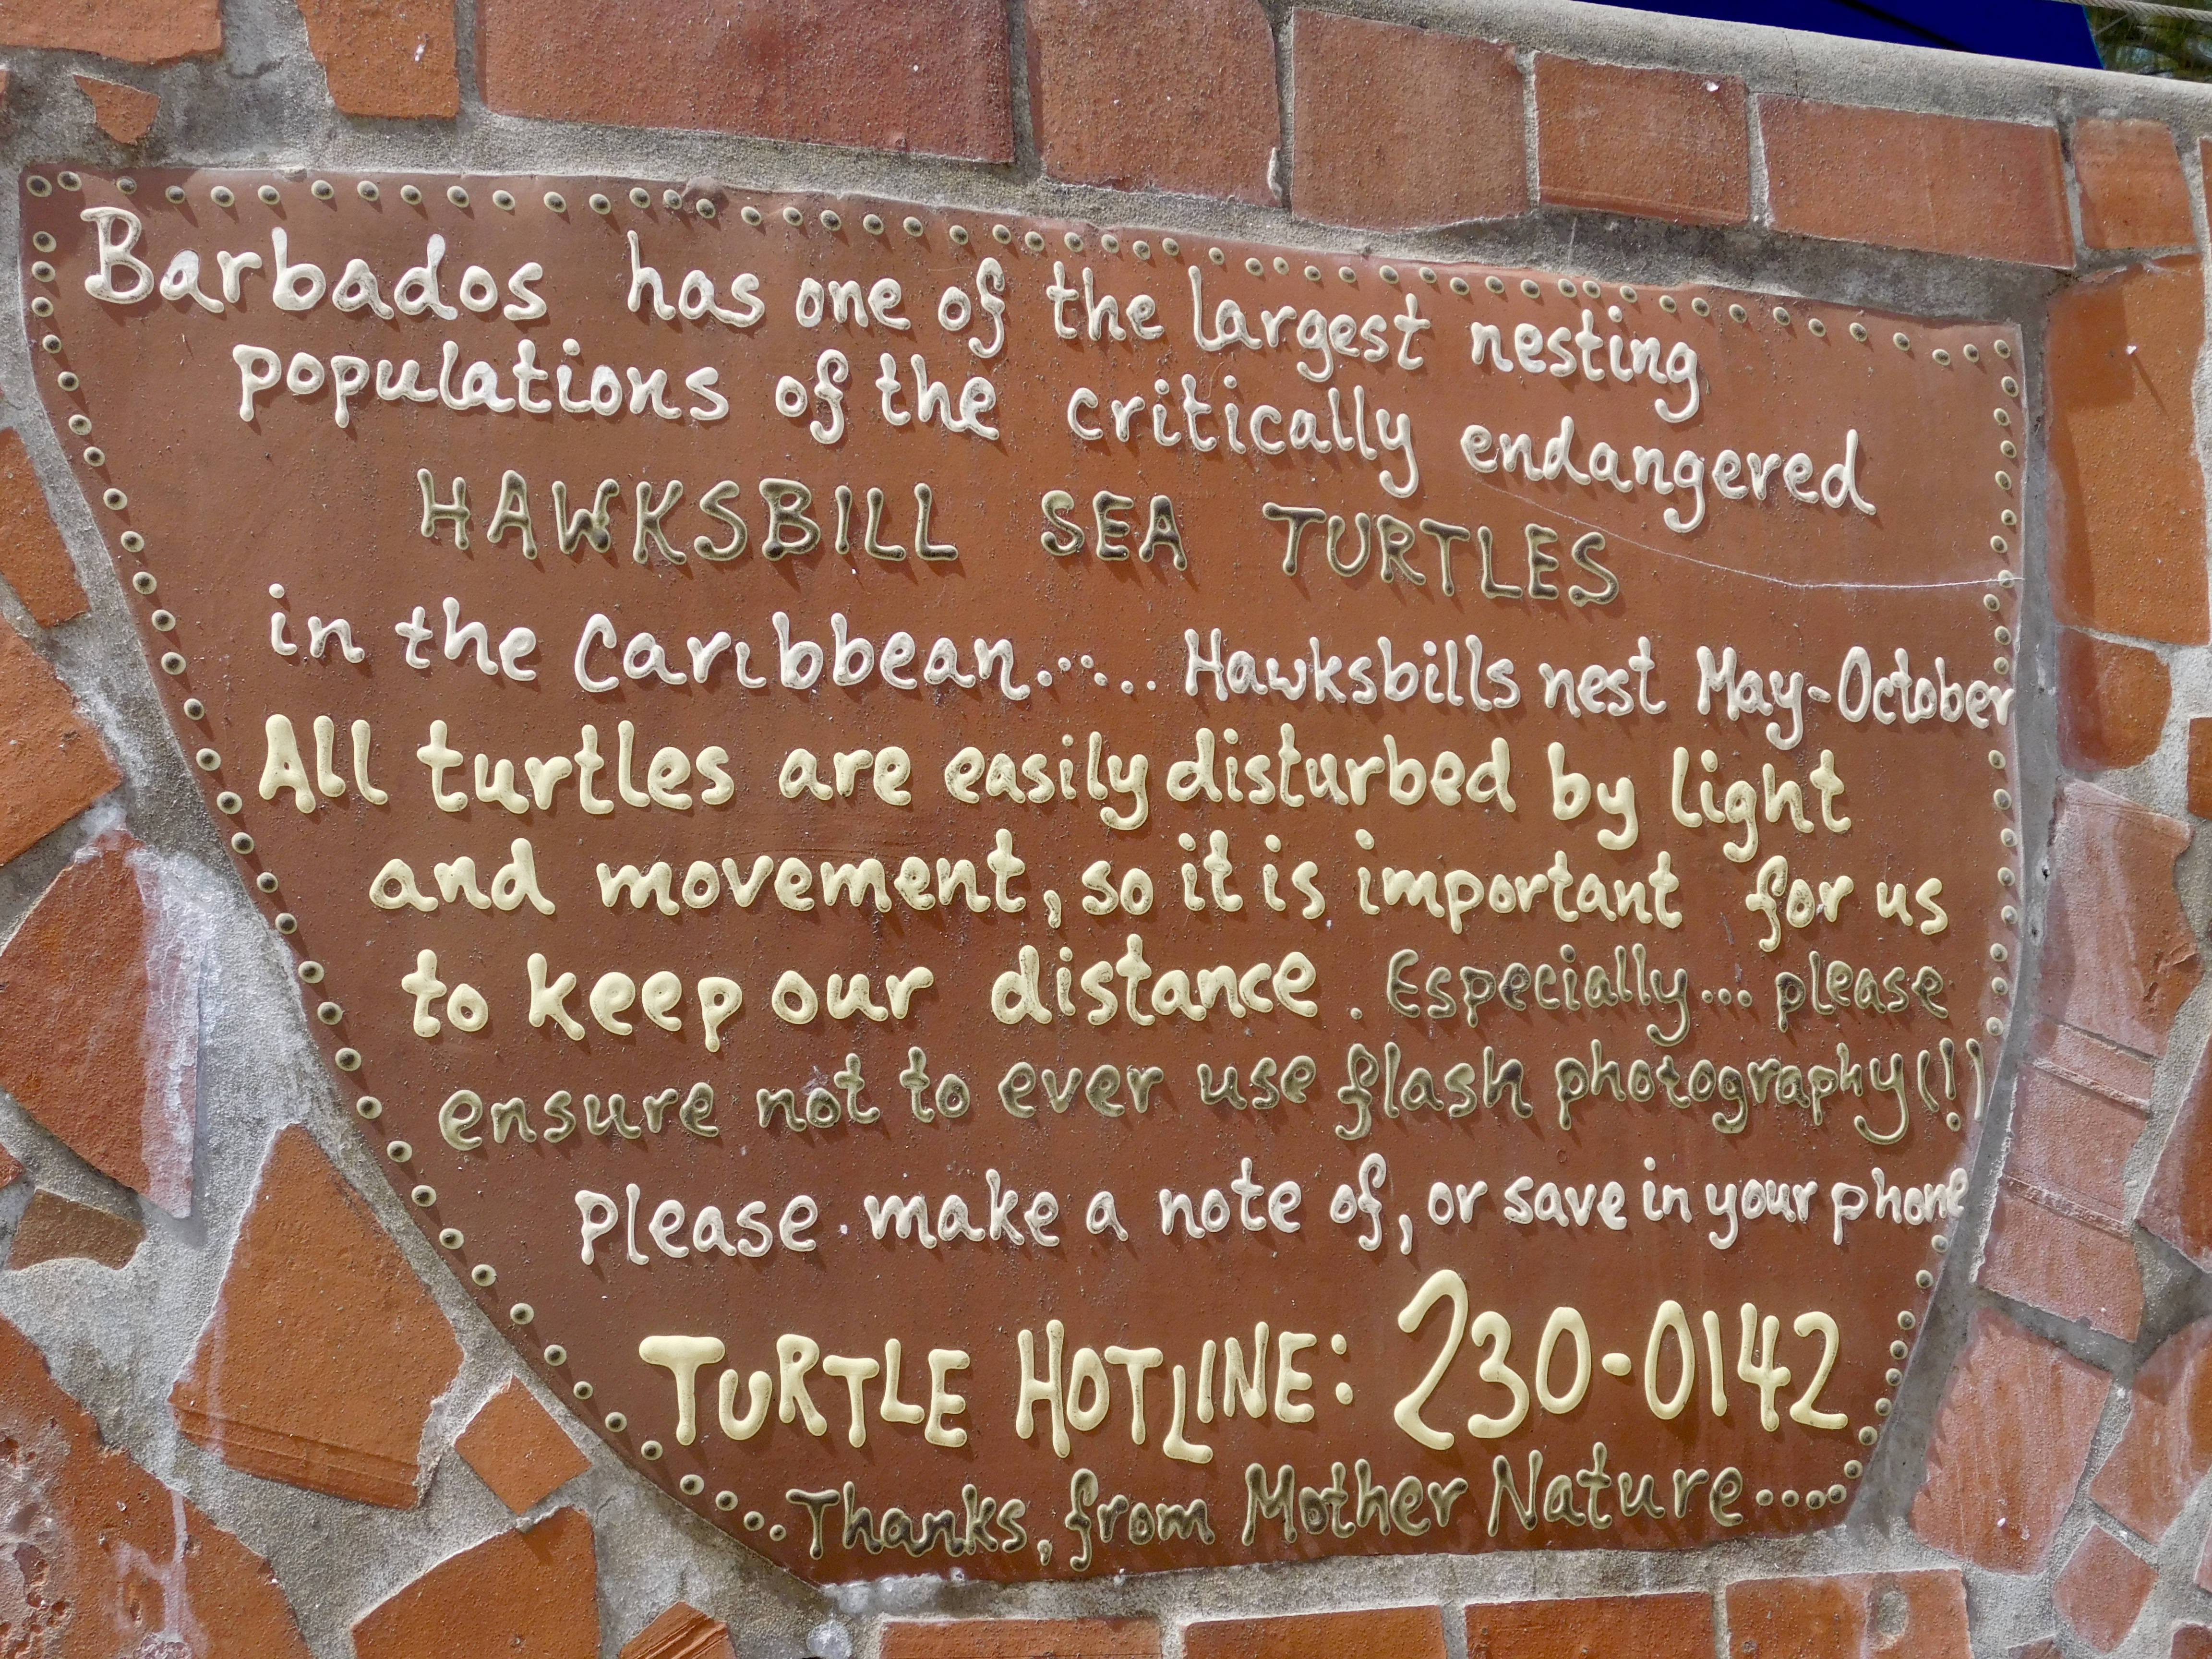 Barbados has one of the largest nesting
populations of the critically endangered
HAWKSBILL SEA TURTLES
in the Caribbean...... Hawksbills nest May-October
All turtles are easily disturbed by light
and movement, so it is important for us
to keep our distance. Especially... please
ensure not to ever use flash photography(!)
please make a note of, or save in your phone
TURTLE HOTLINE: 230-0142
Thanks, from Mother Nature....